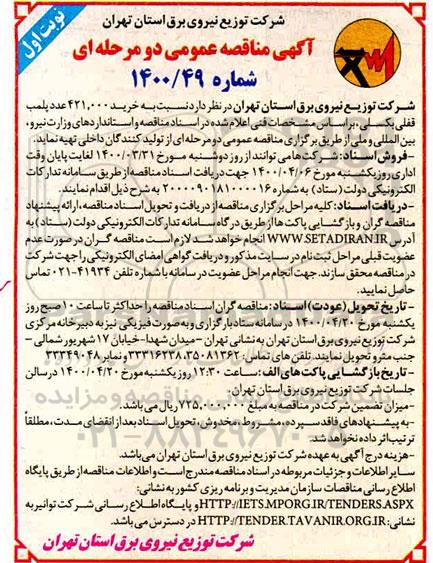 شرکت توزیع نیروی برق استان تهران
نوبت اول
آگهی مناقصه عمومی دو مرحله ای
شماره ۱۴۰۰/۴۹
شرکت توزیع نیروی برق استان تهران در نظر دارد نسبت به خرید ۴۲۱,۰۰۰ عدد پلمب
قفلی بکسلی، بر اساس مشخصات فنی اعلام شده در اسناد مناقصه و استانداردهای وزارت نیرو،
بین المللی و ملی از طریق برگزاری مناقصه عمومی دو مرحله ای از تولید کنندگان داخلی تهیه نماید.
-فروش اسناد: شرکت ها می توانند از روز دوشنبه مورخ ۱۴۰۰/۰۳/۳۱ لغایت پایان وقت
اداری روز یکشنبه مورخ ۱۴۰۰/۰۴/۰۶ جهت دریافت اسناد مناقصه از طریق سامانه تدارکات
الکترونیکی دولت (ستاد) به شماره ۲۰۰۰۰۹۰۱۸۱۰۰۰۰۱۶ به شرح ذیل اقدام نمایند.
-دریافت اسناد: کلیه مراحل برگزاری مناقصه از دریافت و تحویل اسناد مناقصه، ارائه پیشنهاد
مناقصه گران و بازگشایی پاکت ها از طریق درگاه سامانه تدارکات الکترونیکی دولت (ستاد) به
آدرس WWW.SETADIRAN.IR انجام خواهد شد. لازم است مناقصه گران در صورت عدم
عضویت قبلی مراحل ثبت نام در سایت مذکور و دریافت گواهی امضای الکترونیکی را جهت شرکت
در مناقصه محقق سازند. جهت انجام مراحل عضویت در سامانه با شماره تلفن ۴۱۹۳۴-۰۲۱ تماس
حاصل نمایید.
-تاریخ تحویل (عودت) اسناد: مناقصه گران اسناد مناقصه را حداکثر تا ساعت ۱۰ صبح روز
یکشنبه مورخ ۱۴۰۰/۰۴/۲۰ در سامانه ستاد بارگزاری و به صورت فیزیکی نیز به دبیرخانه مرکزی
شرکت توزیع نیروی برق استان تهران به نشانی تهران - میدان شهدا- خیابان ۱۷ شهریور شمالی -
جنب مترو تحویل نمایند. تلفن های تماس: ۳۵۰۸۱۳۶۲، ۳۳۳۱۶۲۳۸ و نمابر ۳۳۳۴۹۰۴۸
-تاریخ بازگشایی پاکت های الف: ساعت ۱۲:۳۰ روز یکشنبه مورخ ۱۴۰۰/۰۴/۲۰ در سالن
جلسات شرکت توزیع نیروی برق استان تهران
-میزان تضمین شرکت در مناقصه به مبلغ ۷۳۵,۰۰۰,۰۰۰ ریال می باشد.
-به پیشنهادهای فاقد سپرده، مشروط، مخدوش، تحویل اسناد بعد از انقضای مدت، مطلقاً
ترتیب اثر داده نخواهد شد.
-هزینه درج آگهی به عهده شرکت توزیع نیروی برق استان تهران می باشد.
سایر اطلاعات و جزئیات مربوطه در اسناد مناقصه مندرج است و اطلاعات مناقصه از طریق پایگاه
اطلاع رسانی مناقصات سازمان مدیریت و برنامه ریزی کشور به نشانی:
HTTP://IETS.MPORG.IR/TENDERS.ASPX و پایگاه اطلاع رسانی شرکت توانیر به
نشانی: HTTP://TENDER.TAVANIR.ORG.IR در دسترس می باشد.
شرکت توزیع نیروی برق استان تهران